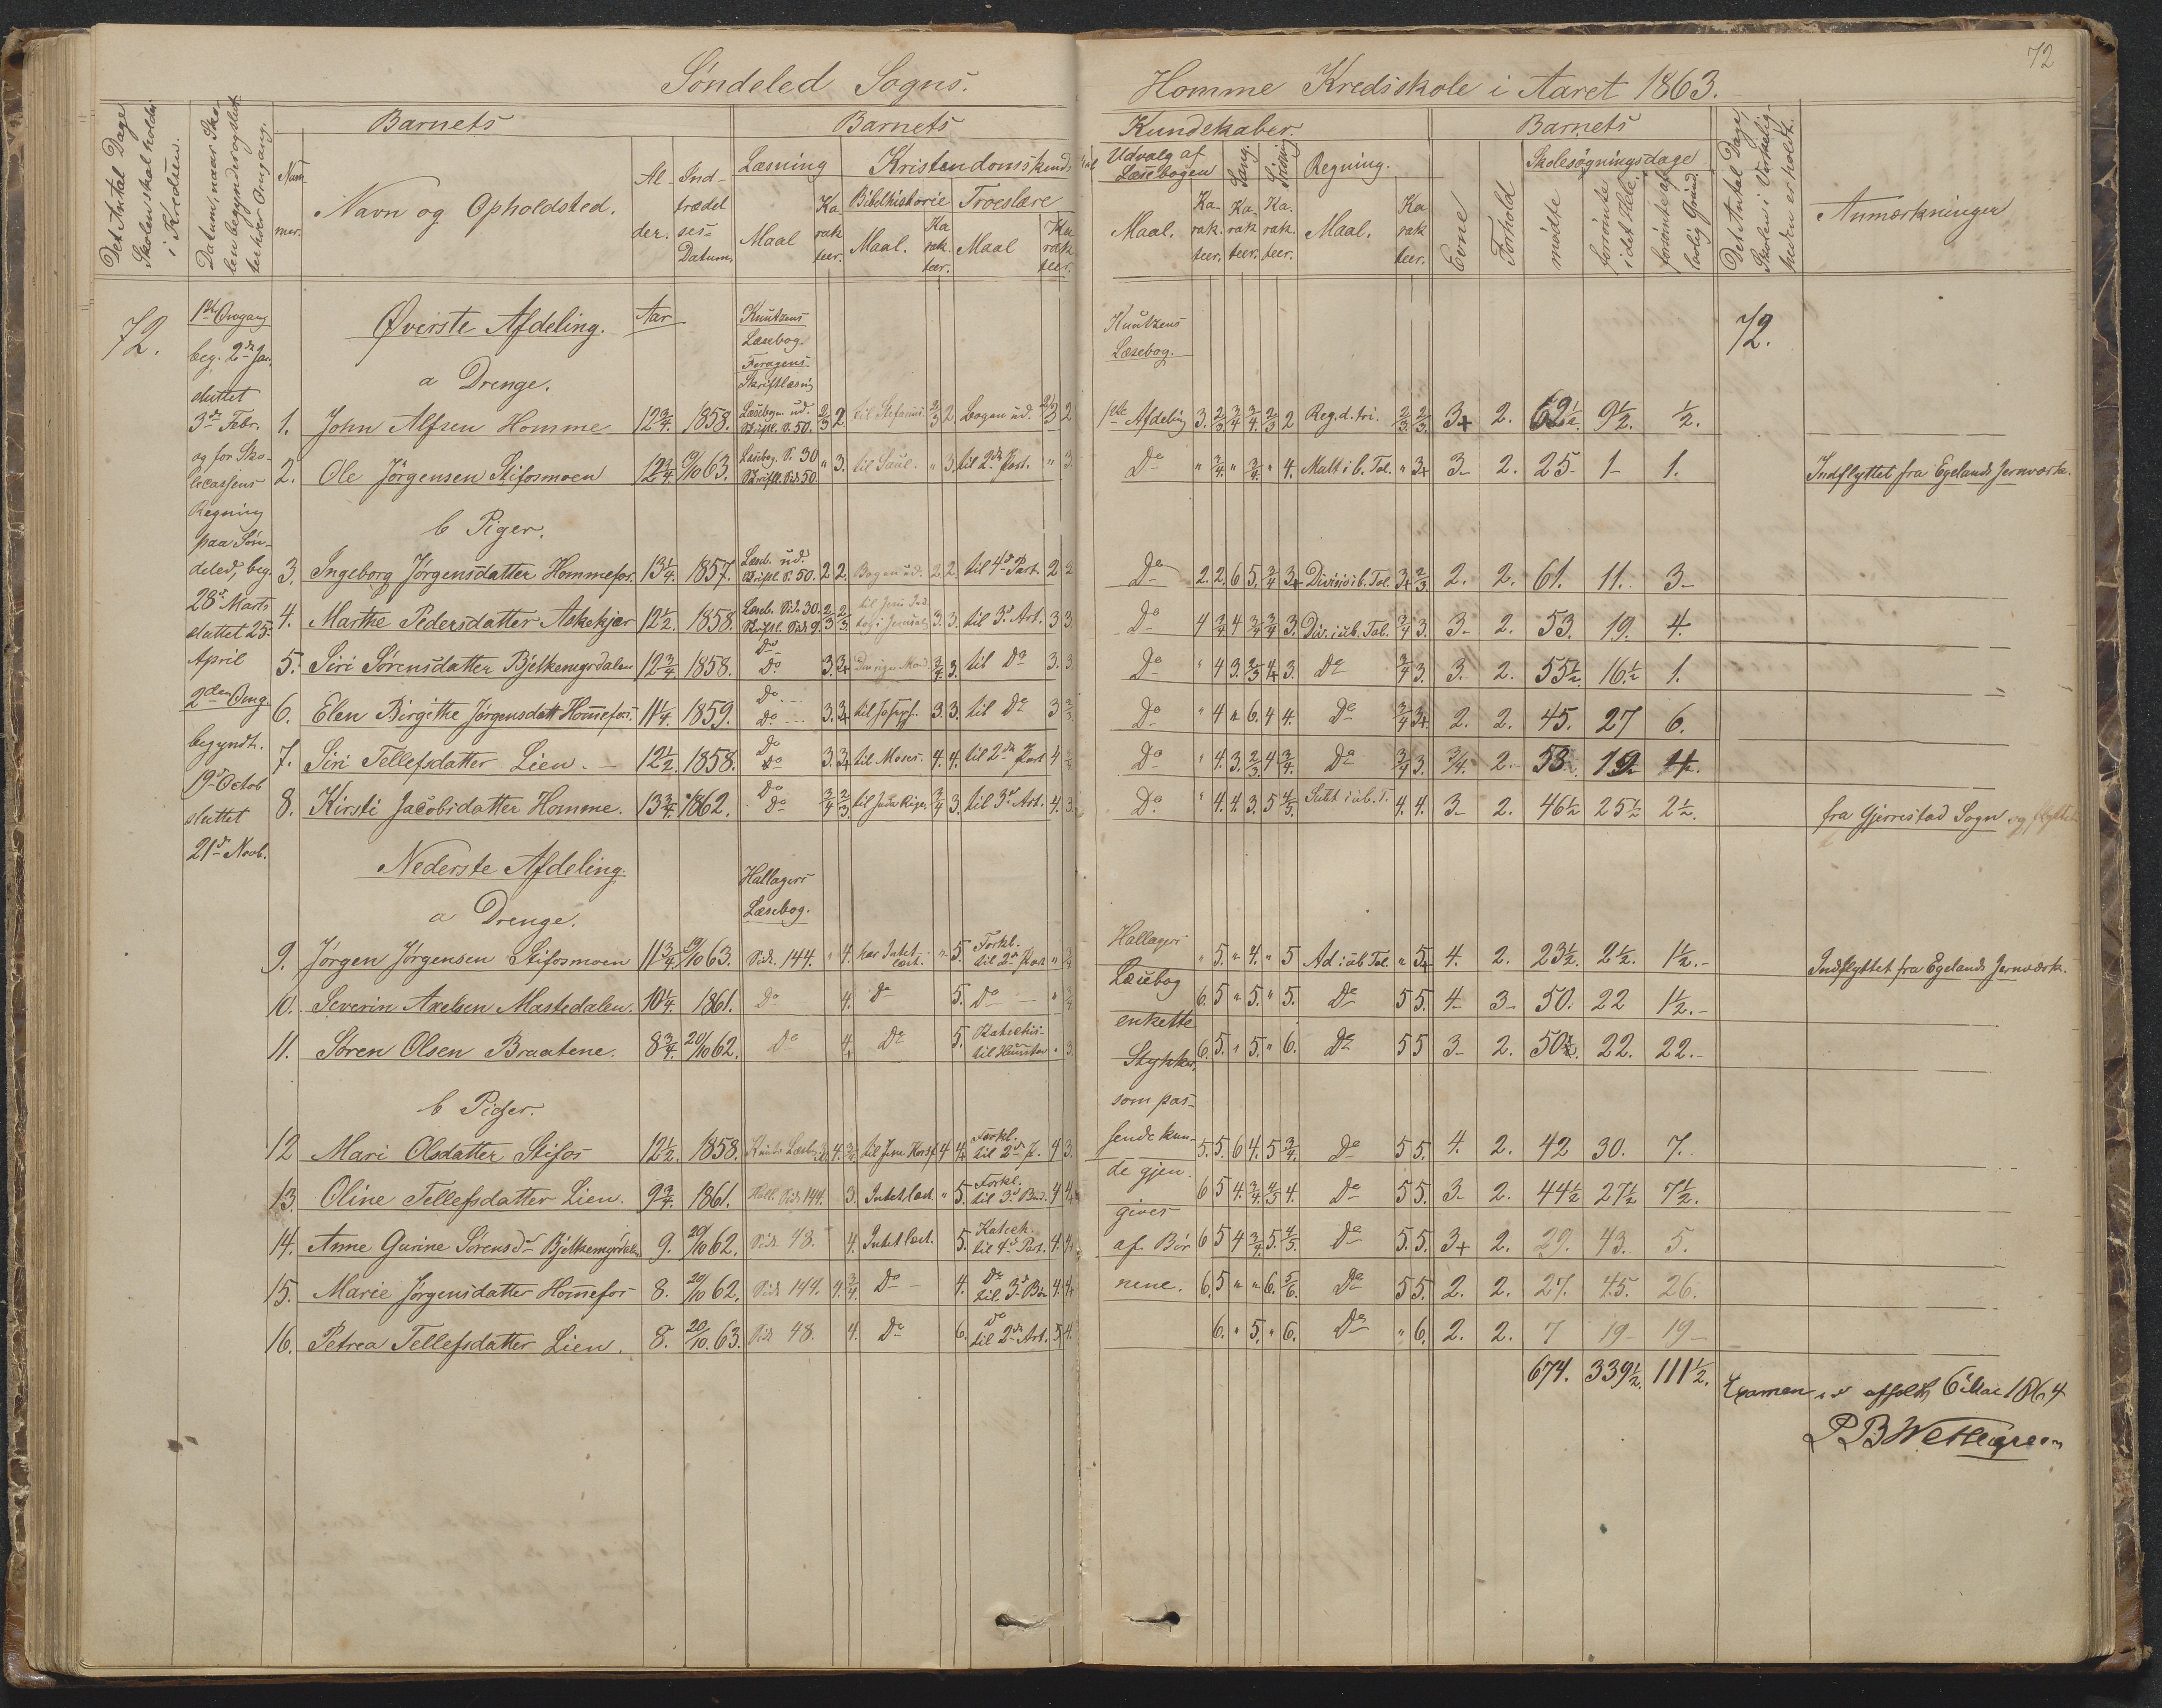 72
Søndeled Sogns. Homme Kredsskole i Aaret 1863.
Det Antal Dage Skolen skal holdes i Kredsen.
Datum, naar Skolen begynder og slutter hver Omgang.
Barnets
Nummer.
Navn og Opholdsted.
Alder.
Indtrædelses-Datum.
Barnets Kundskaber.
Læsning
Maal
Karakteer.
Kristendomskundskab
Bibelhistorie
Maal.
Karakteer.
Troeslære
Maal
Karakteer.
Udvalg af Læsebogen
Maal.
Karakteer.
Sang.
Karakteer.
Skrivning
Karakteer.
Regning.
Maal.
Karakteer.
Barnets
Evne
Forhold
Skolesøgningsdage
mødte
forsømte i det Hele
forsømte af lovlig Grund.
Det Antal Dage, Skolen i Virkeligheden er holdt.
Anmærkninger
72.
1ste Omgang
beg. 2den Jan.
sluttet
3de Febr.
og for Sko-
lecassens
Regning
paa Søn-
deled, beg.
28de Marts
sluttet 25.
April
2den Omg.
begyndt.
19de Octob
sluttet
21de Novb.
Øverste Afdeling. Aar
Knutzens Læsebog.
Skriftlæsnig
Knutzens Læsebog.
72.
a Drenge.
1. John Alfsen Homme 12 3/4. 1858. Læsebogen ud. Skriftl. S. 50. 2/3 2. til Stefanus 2/3 2. Bogen ud. 2/3 2 1ste Afdeling 3. 2/3 3/4 3/4 2/3 2 Reg. d. tri. 2/3 2/3 3+ 2. 62 1/2. 9 1/2. 1/2.
2. Ole Jörgensen Stifosmoen 12 3/4. 19/10 63. Læsebog. S. 30 Skriftl. Side 50. " 3. til Saul. " 3. til 2den Part. " 3 Do " 3/4 " 3/4 " 4. Mult i b. Tal. " 3+ 3- 2. 25- 1- 1. Indflyttet fra Egelands Jernværk.
b Piger.
3. Ingeborg Jørgensdatter Hommefos. 13 1/4. 1857. Læseb. ud. Skriftl. S. 50. 2 2. Bogen ud. 2 2 til 4de Part. 2 2 Do 2. 2. 6 5. 3/4 3+ Division i b. Tal. 3+ 2/3 2. 2. 61. 11. 3-
4. Marthe Pedersdatter Askekjær 12 1/2. 1858. Læseb. Side 30. Skriftl. Side 9. 2/3 2/3 3. 3. til 3de Art. 3 3 Do 4 3/4 4 3/4 3/4 3. Div. i ub. Tal. 3/4 3. 3- 2. 53. 19. 4.
5. Siri Sørensdatter Bjelkemyrdalen 12 3/4 1858. Do Do 3. 3+ Den rige Mand. 3/4 3. til Do 3. 3. Do " 4 3. 2/3 4+ 3. Do 3/4 3. 3. 2. 55 1/2. 16 1/2 1.
6. Elen Birgithe Jörgensdatt Hommefos. 11 1/4. 1859. Do Do 3. 3+ til Joseph. 3. 3. til Do 3 2/3 Do " 4 " 6. 4 4. Do 3/4 3+ 2. 2. 45. 27 6.
7. Siri Tellefsdatter Lien. 12 1/2. 1858. Do Do 3. 3+ til Moses. 4. 4. til 2den Part 4 Do " 4. 3. 2/3 4 3/4. Do 3/4 3. 3/4. 2. 58. 19 4.
8. Kirsti Jacobsdatter Homme. 13 3/4. 1862. Do Do 3/4 2/3. 3/4 3. til 3de Art. 4. 3. Do " 4. 4. 3. 5 4/5. Subt i ub. T. 4. 4. 3- 2. 46 1/2 25 1/2 2 1/2. fra Gjerrestad Sogn og flyttet
Nederste Afdeling.
Hallagers Læsebog.
a Drenge.
Hallagers
Læsebog
enkelte
Stykker,
som pas-
sende kun-
de gjen-
gives
af Bör-
nene.
9. Jørgen Jørgensen Stifosmoen 11 3/4. 19/10 63. Side. 144. " 4. har Intet læst. " 5. Forkl. til 2den Part " " 5. " 4. " 5 Ad i ub Tal. " 5+ 4. 2. 23 1/2. 2 1/2. 1 1/2. Indflyttet fra Egelands Jernværk.
10. Severin Axelsen Mastedalen. 10 1/4. 1861. Do 4. Do 5. Do " 3/4 6. 5 " 5. " 5. Do 5 5. 4- 3- 50. 22 1 1/2.
11. Søren Olsen Braatene. 8 3/4. 20/10 62. Do 4. Do 5. Katechis- 3. 6. 5. " 5. " 6. Do 5 5 3- 2. 50 1/2. 22. 22.
b Piger.
12 Mari Olsdatter Stifos 12 1/2. 1858. 4. 3/4. til Jesu Korsf. 4 4 Forkl. til 2den P. 4 3. 5. 5. 6 4. 5 3/4. Do 5 5. 4. 2. 42 30. 7.
13. Oline Tellefsdatter Lien. 9 3/4. 1861. Hall. Side 144. 3. Intet læst. " 5. Forkl. til 3de Bud. 4 4. 6 5 4. 3/4 4/5 4. Do 5 5. 3- 2. 44 1/2 27 1/2 7 1/2.
14. Anne Gurine Sørensdr Bjelkemyrdalen 9. 20/10 62. Side 48. 4. Intet læst. 5. Katech. til 4de Part. 4. 4. 6 5 4 3/4. 5. 4/5. Do 5. 5. 3+ 2. 29. 43. 5.
15. Marie Jørgensdatter Hommefos 8. 20/10 62. Side 144. 4. 3/4. Do 4. Do til 3de Bön 4. 4. 6. 5 " " 6. 5/6. Do 5 5. 2. 2. 27. 45. 26.
16. Petrea Tellefsdatter Lien. 8. 20/10. 63. Side 48. 4. Do 6. Do til 2den Art. 5. 4. 6. " 5. " 6. Do " 6. 2. 2. 7 19- 19-
674. 339 1/2. 111 1/2.
Examen afholdt 6 Mai 1864
P B Wettergreen